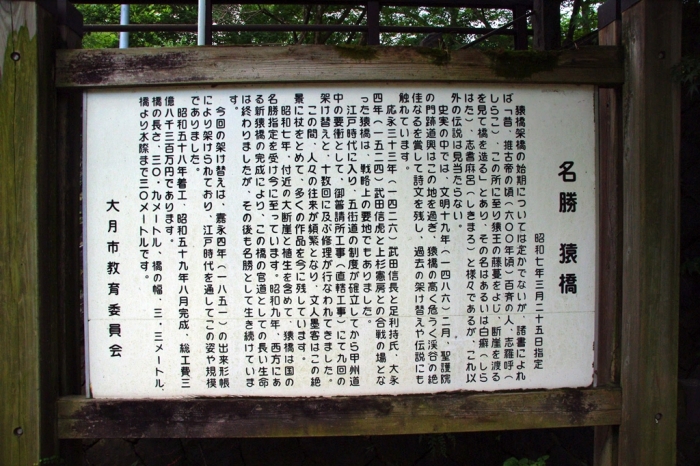 名勝　猿橋
昭和七年三月二十五日指定
猿橋架橋の始期については定かでないが、諸書によれ
ば「昔、推古帝の頃（六〇〇年頃）百済の人、志羅呼（
しらこ）、この所に至り猿王の藤蔓をよじ、断崖を渡る
を見て橋を造る」とあり、その名はあるいは白癬（しら
はた）、志耆麻呂（しきまろ）と様々であるが、これ以
外の伝説は見当たらない。
史実の中では、文明十九年（一四八六）二月、聖護院
の門跡道興はこの地を過ぎ、猿橋の高く危うく渓谷の絶
佳なるを賞して詩文を残し、過去の架け替えや伝説にも
触れています。
応永三十三年（一四二六）武田信長と足利持氏、大永
四年（一五二四）武田信虎と上杉憲房との合戦の場とな
った猿橋は、戦略上の要地でもありました。
江戸時代に入り、五街道の制度が確立してから甲州道
中の要衝として、御普請所工事（直轄工事）にて九回の
架け替えと、十数回に及ぶ修理が行なわれてきました。
この間、人々の往来が頻繁となり、文人墨客はこの絶
景に杖をとめて、多くの作品を今に残しています。
昭和七年、付近の大断崖と植生を含めて、猿橋は国の
名勝指定を受け今に至っています。昭和九年、西方にあ
る新猿橋の完成により、この橋の官道としての長い生命
は終わりましたが、その後も名勝として生き続けていま
す。
今回の架け替えは、嘉永四年（一八五一）の出来形帳
により架けられており、江戸時代を通してこの姿や規模
でありました。
昭和五十八年着工、昭和五十九年八月完成、総工費三
億八千三百万円であります。
橋の長さ、三〇．九メートル、橋の幅、三．三メートル、
橋より水際まで三〇メートルです。
大月市教育委員会